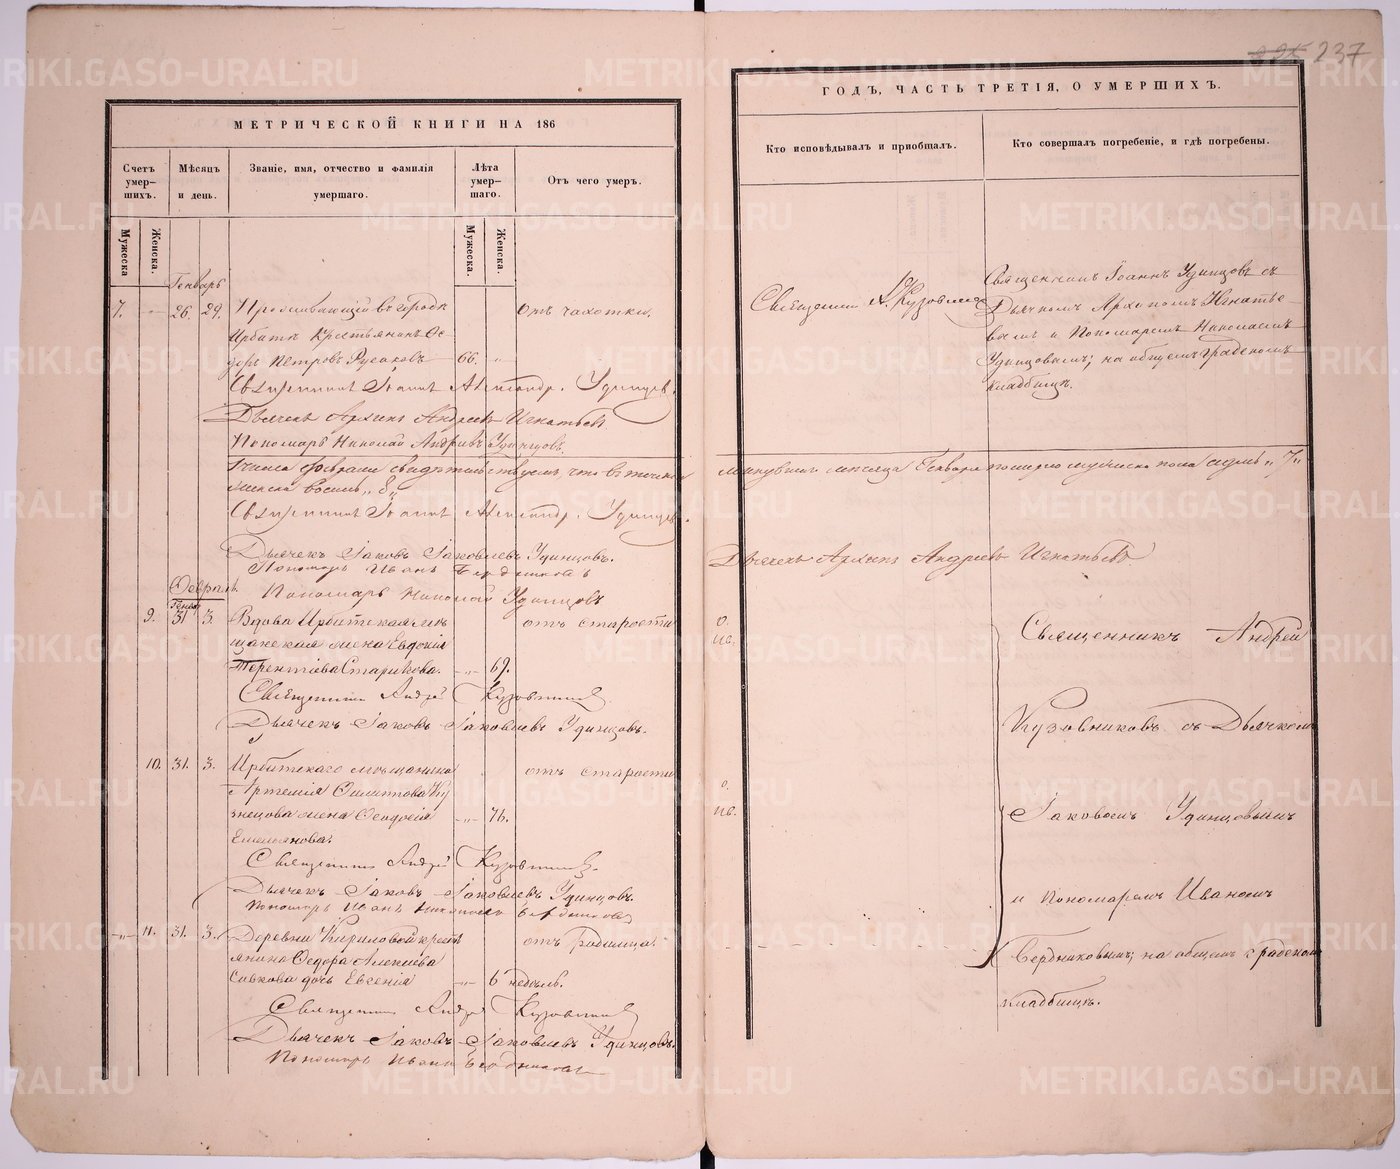 237
МЕТРИЧЕСКОЙ КНИГИ НА 186
Счетъ умер-шихъ.
Мѣсяцъ и день.
Званіе, имя, отчество и фамилія умершаго.
Лѣта умер-шаго.
Отъ чего умеръ.
Мужеска
Женска.
Мужеска
Женска.
Генварь
7. 26. 29. Проживающій в городѣ от чахотки.
Ирбити Крестьянинъ Ѳе-
доръ Петровъ Русаковъ 66.
Священникъ Іоаннъ Александр. Удинцевъ.
Дьячекъ Архипъ Андреевъ Игнатьевъ
Пономарь Николай Андреевъ Удинцовъ.
февраля свидѣтельствуемъ, что в теченіи
женска восемь „8„
Священникъ Іоаннъ Александр. Удинцевъ.
Дьячекъ Іаковъ Іаковлевъ Удинцовъ.
Пономарь Иванъ Бердниковъ
Февраль. Пономарь Николай Удинцовъ
Генвар
9. 31 3. Вдова Ирбитская мѣ- отъ старости
щанская жена Евдокія
Терентіева Старикова. 69.
Священникъ Андрей Кузовниковъ
Дьячекъ Іаковъ Іаковлевъ Удинцовъ.
10. 31. 3. Ирбитскаго мѣщанина отъ старости
Артемія Филиппова Ку
знецова жена Ѳеодосія 76.
Емельянова.
Священникъ Андрей Кузовниковъ.
Дьячекъ Іаковъ Іаковлевъ Удинцовъ.
Пономарь Иванъ Бердниковъ
11. 31. 3. Деревни Кириловой крестъ отъ родимца.
янина Ѳедора Алексіева
дочь Евгенія 6 недѣль.
Священникъ Андрей Кузовниковъ
Дьячекъ Іаковъ Іаковлевъ Удинцовъ.
Пономарь Иванъ Бердниковъ
ГОДЪ, ЧАСТЬ ТРЕТІЯ, О УМЕРШИХЪ.
Кто исповѣдывалъ и пріобщалъ.
Кто совершалъ погребеніе, и гдѣ погребены.
Священникъ А. Кузовниковъ
Священникъ Іоаннъ Удинцовъ съ
Дьячкомъ Архипомъ Игнатье-
вымъ и Пономаремъ Николаемъ
Удинцовымъ; на общемъ градскомъ
кладбищѣ.
минувшаго мѣсяца Генваря померло мужеска пола семь „7„
Дьячекъ Архипъ Андреевъ Игнатьевъ
Священникъ Андрей
Кузовниковъ съ Дьячкомъ
Іаковомъ Удинцовымъ
и Пономаремъ Иваномъ
Бердниковымъ; на общемъ градскомъ
кладбищѣ.
METRIKI.GASO-URAL.RU